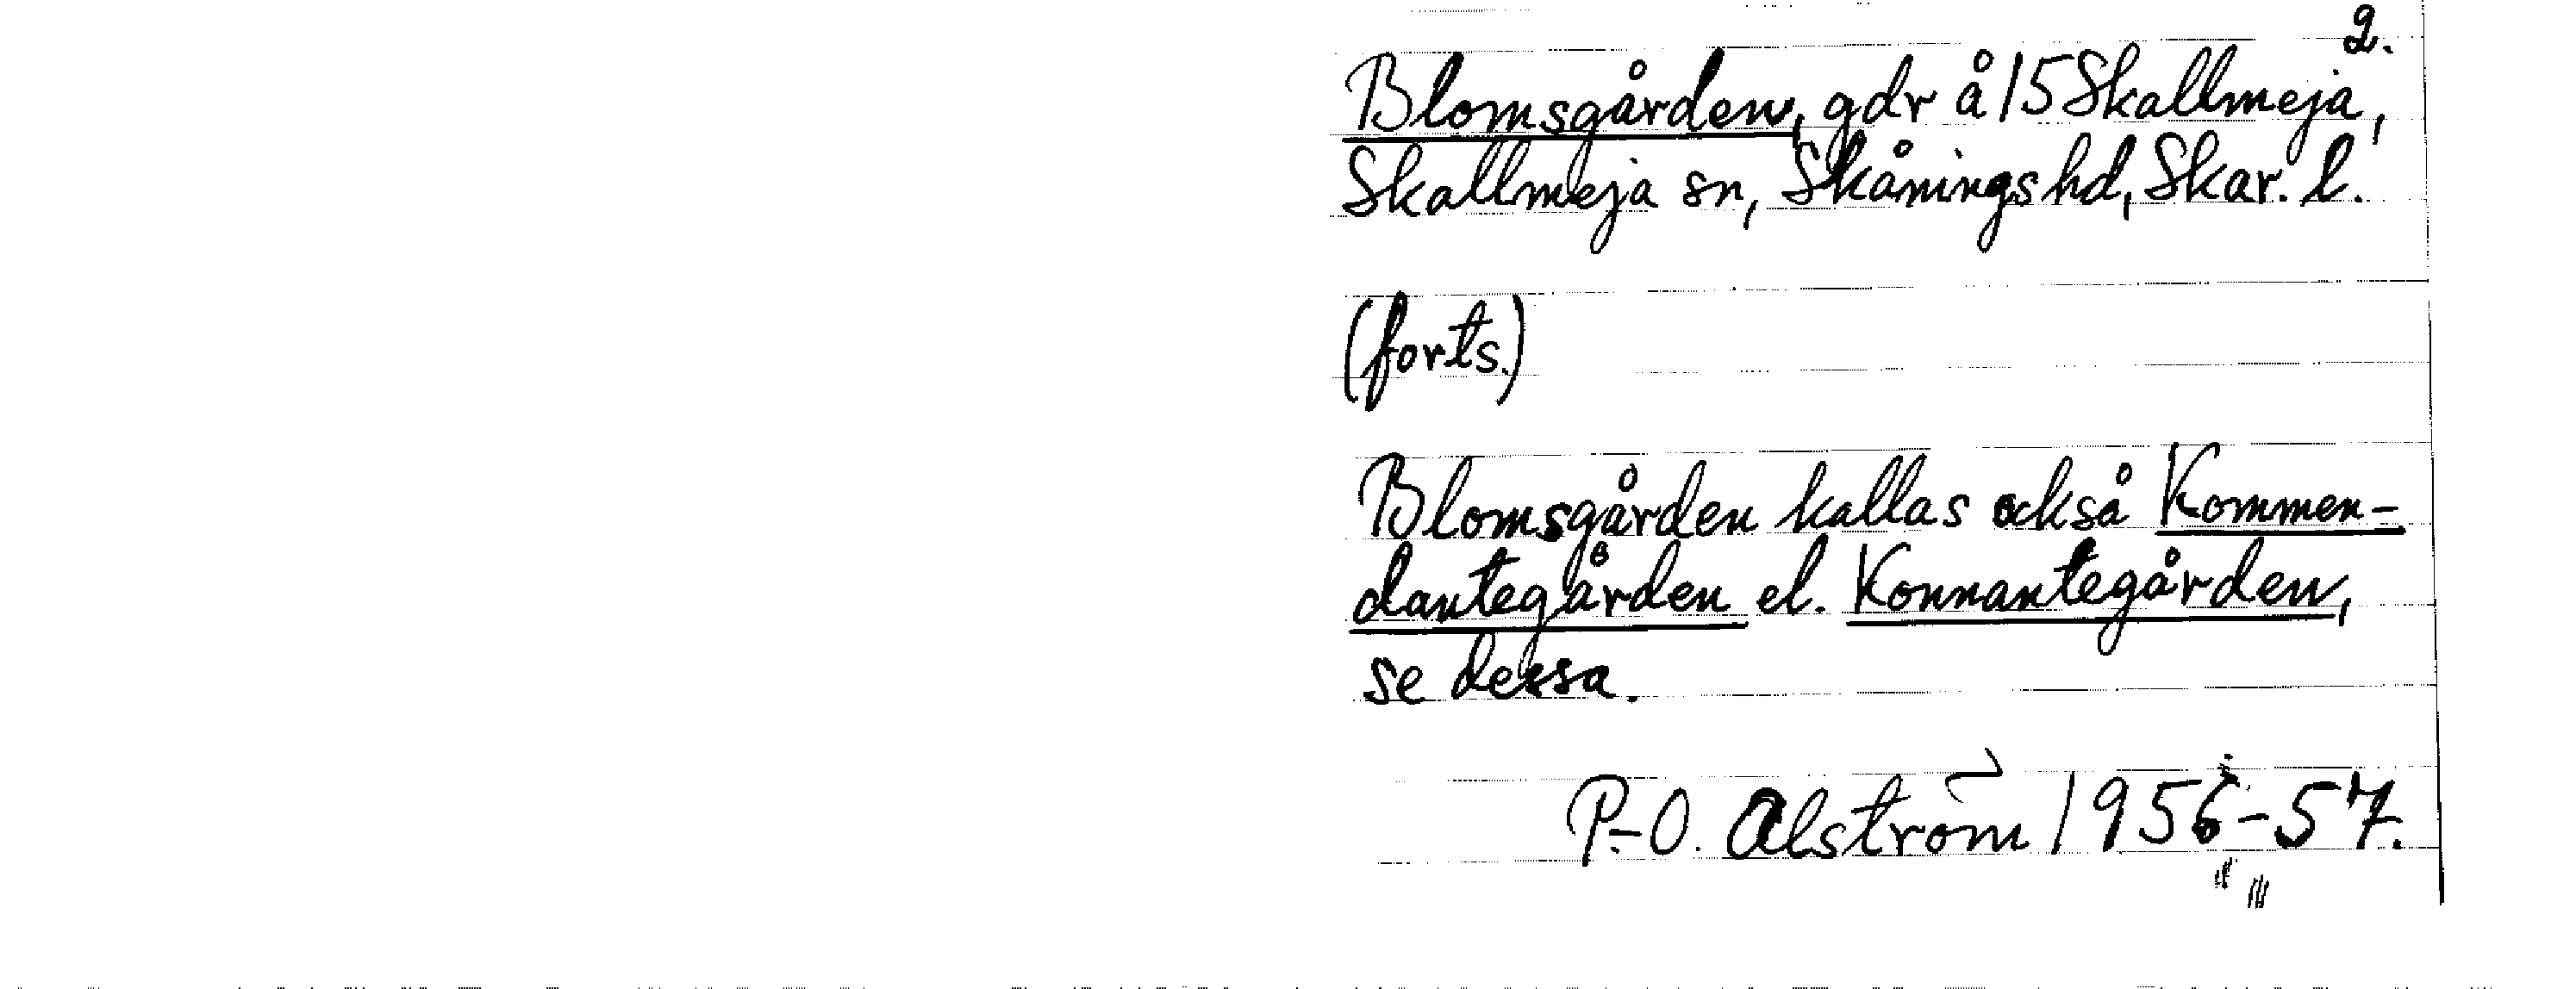 2.
Blomsgården, gdr å 15 Skallmeja,
Skallmeja sn, Skånings hd, Skar. l.
(forts.)
Blomsgården kallas också Kommen-
dantegården el. Konnantegården,
se dessa.
P.-O. Alström 1956-57.